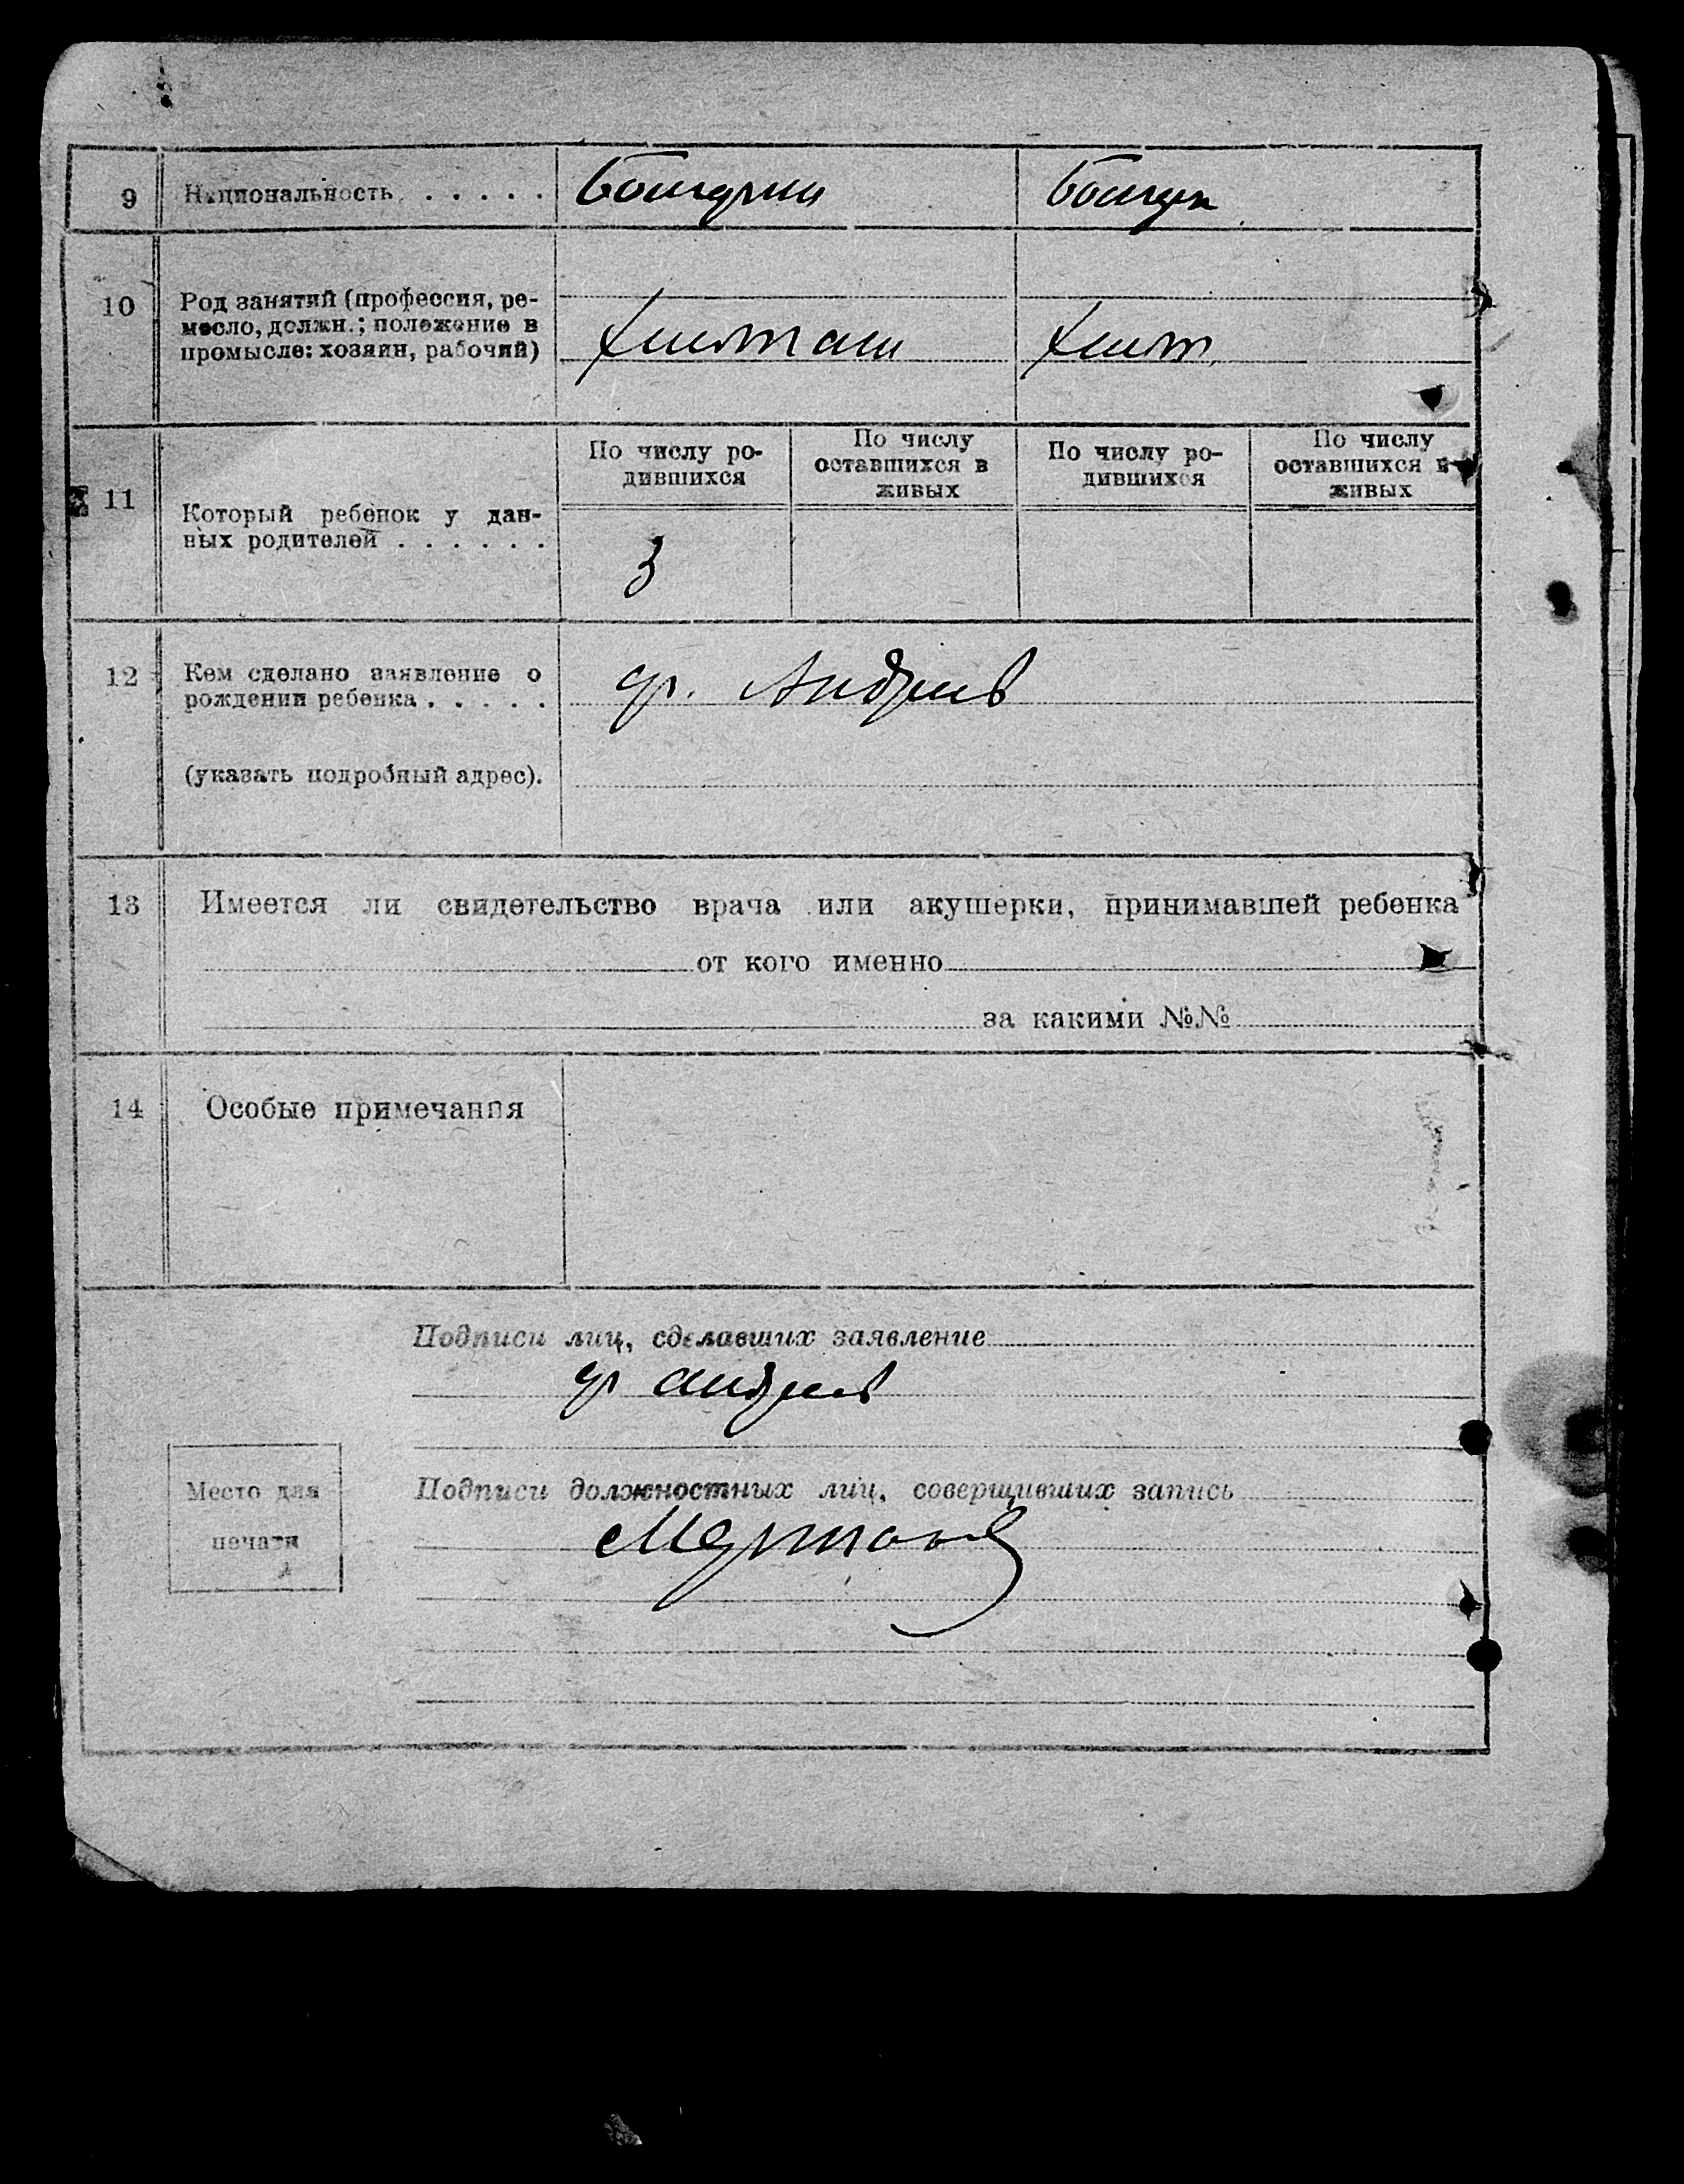 9 Национальность . . . . . .
10 Род занятий (профессия, ре-
месло, должн.; положение в
промысле: хозяин, рабочий)
11 Который ребенок у дан-
ных родителей . . . . . .
По числу ро-
дившихся
По числу
оставшихся в
живых
По числу ро-
дившихся
По числу
оставшихся в
живых
3
12 Кем сделано заявление о
рождении ребенка . . . . .
гр. Андреев
(указать подробный адрес).
13 Имеется ли свидетельство врача или акушерки, принимавшей ребенка
от кого именно
за какими №№
14 Особые примечания
Подписи лиц, сделавших заявление
гр Андреев
Место для
печати
Подписи должностных лиц, совершивших запись